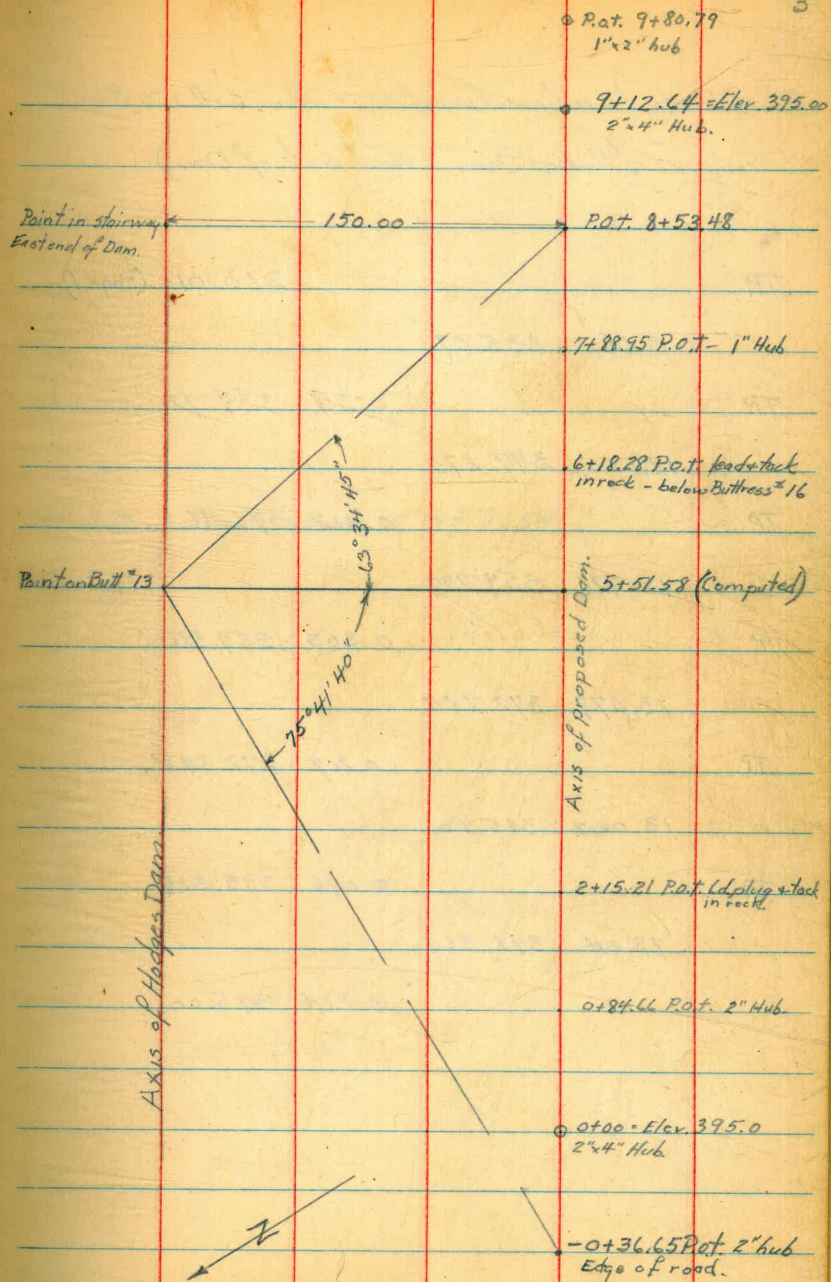 3
P.o.t. 9+80.79
1"x2" hub
9+12.64 = Elev. 395.00
2"x4" Hub.
Point in stairway
East end of Dam.
150.00
P.O.T. 8+53.48
7+88.95 P.O.T- 1" Hub
6+18.28 P.O.T. lead & tack
in rock - below Buttress #16
63° 34' 45"
Point on Butt #13
5+51.58 (Computed)
75° 41' 40"
Axis of proposed Dam.
Axis of Hodges Dam.
2+15.21 P.O.T. Ld. plug & tack
in rock.
0+84.66 P.O.T. 2" Hub.
0+00 = Elev. 395.0
2"x4" Hub.
N
-0+36.65 P.o.t. 2" hub
Edge of road.